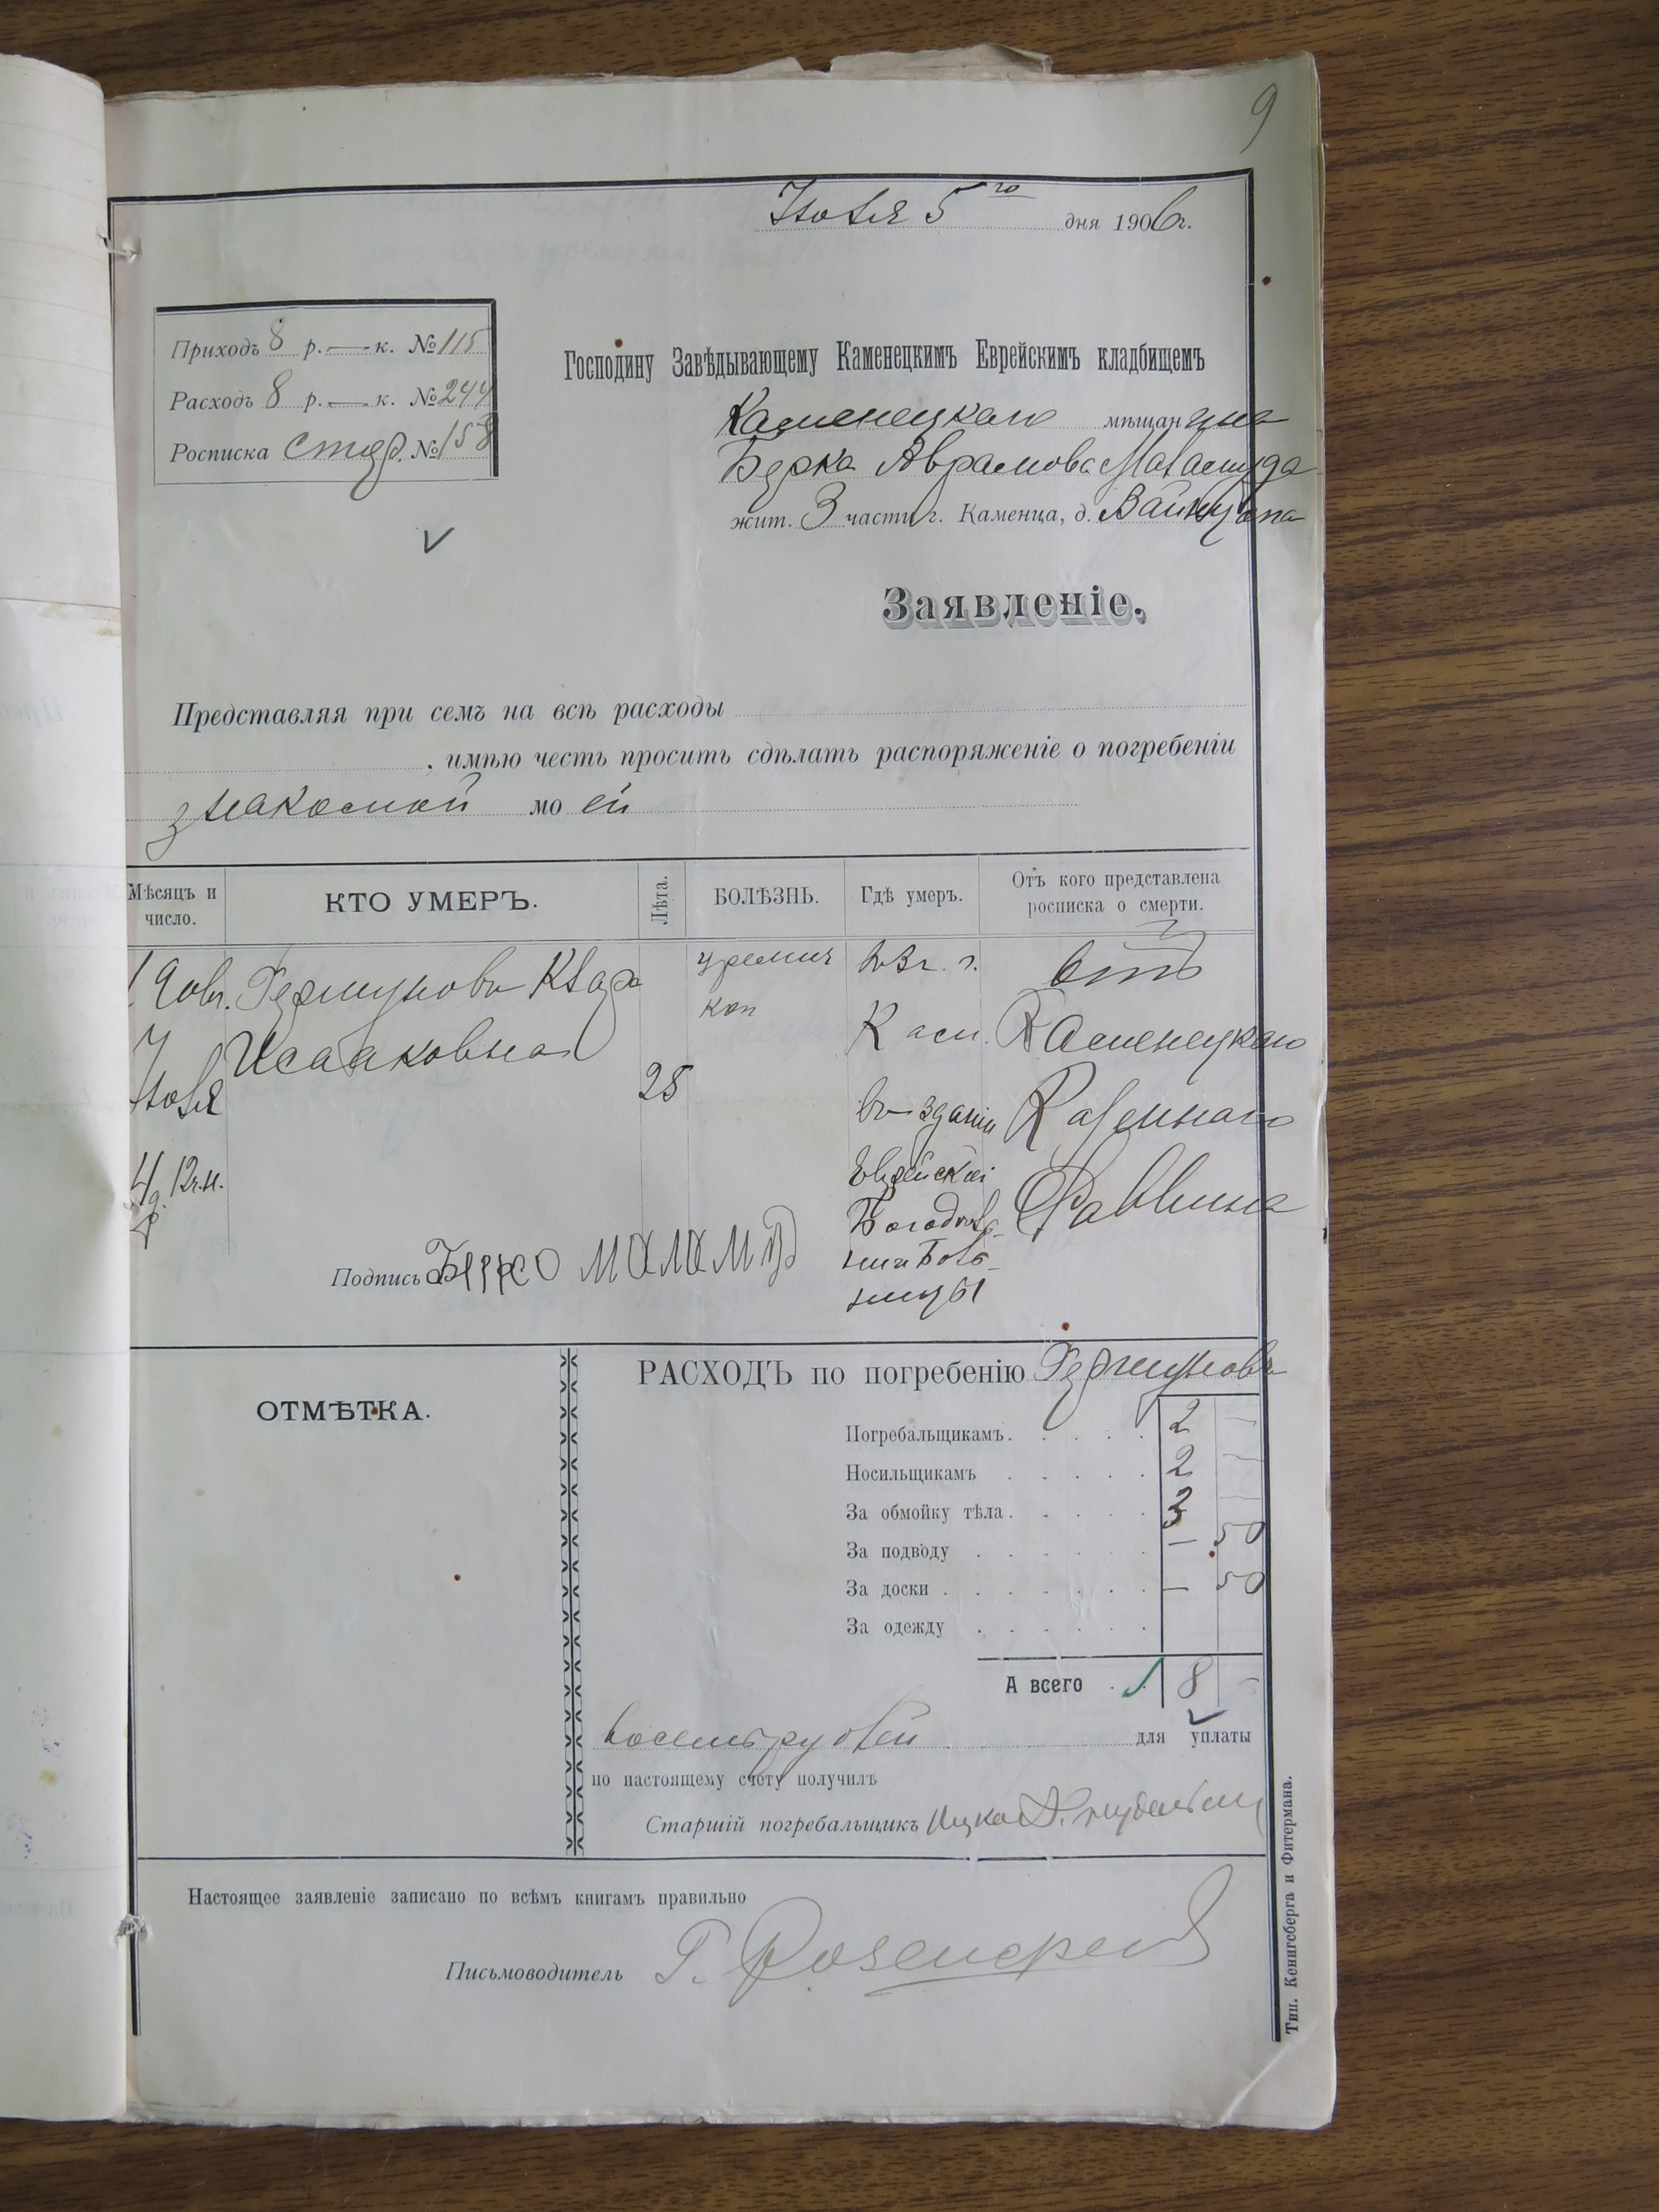 9
Іюля 5 го дня 1906 г.
Приходъ 8 р. — к. № 115
Расходъ 8 р. — к. № 244
Росписка студ. № 158
Господину Завѣдывающему Каменецкимъ Еврейскимъ кладбищемъ
Каменецкаго мѣщанина
Берка Аврамова Маламуда
жит. 3 части г. Каменца, д.
Заявленіе.
Представляя при семъ на всѣ расходы
, имѣю честь просить сдѣлать распоряженіе о погребеніи
знакомой мо ей
Мѣсяцъ и число.
КТО УМЕРЪ.
Лѣта.
БОЛѢЗНЬ.
Гдѣ умеръ.
Отъ кого представлена росписка о смерти.
Исааковна
Іюля
4
25
въ г.
Кам.
въ зданіи
Еврейской
Богоугод-
ной Боль-
ницы
отъ
Каменецкаго
Казеннаго
Раввина
Подпись Берко Маламуд
ОТМѢТКА.
РАСХОДЪ по погребенію
Погребальщикамъ. 2 —
Носильщикамъ 2 —
За обмойку тѣла. 3 —
За подводу — 50
За доски — 50
За одежду
А всего 8 —
восемь рублей для уплаты
по настоящему счету получилъ
Старшій погребальщикъ Ицко
Настоящее заявленіе записано по всѣмъ книгамъ правильно
Письмоводитель Г.
Тип. Кенигсберга и Фитермана.